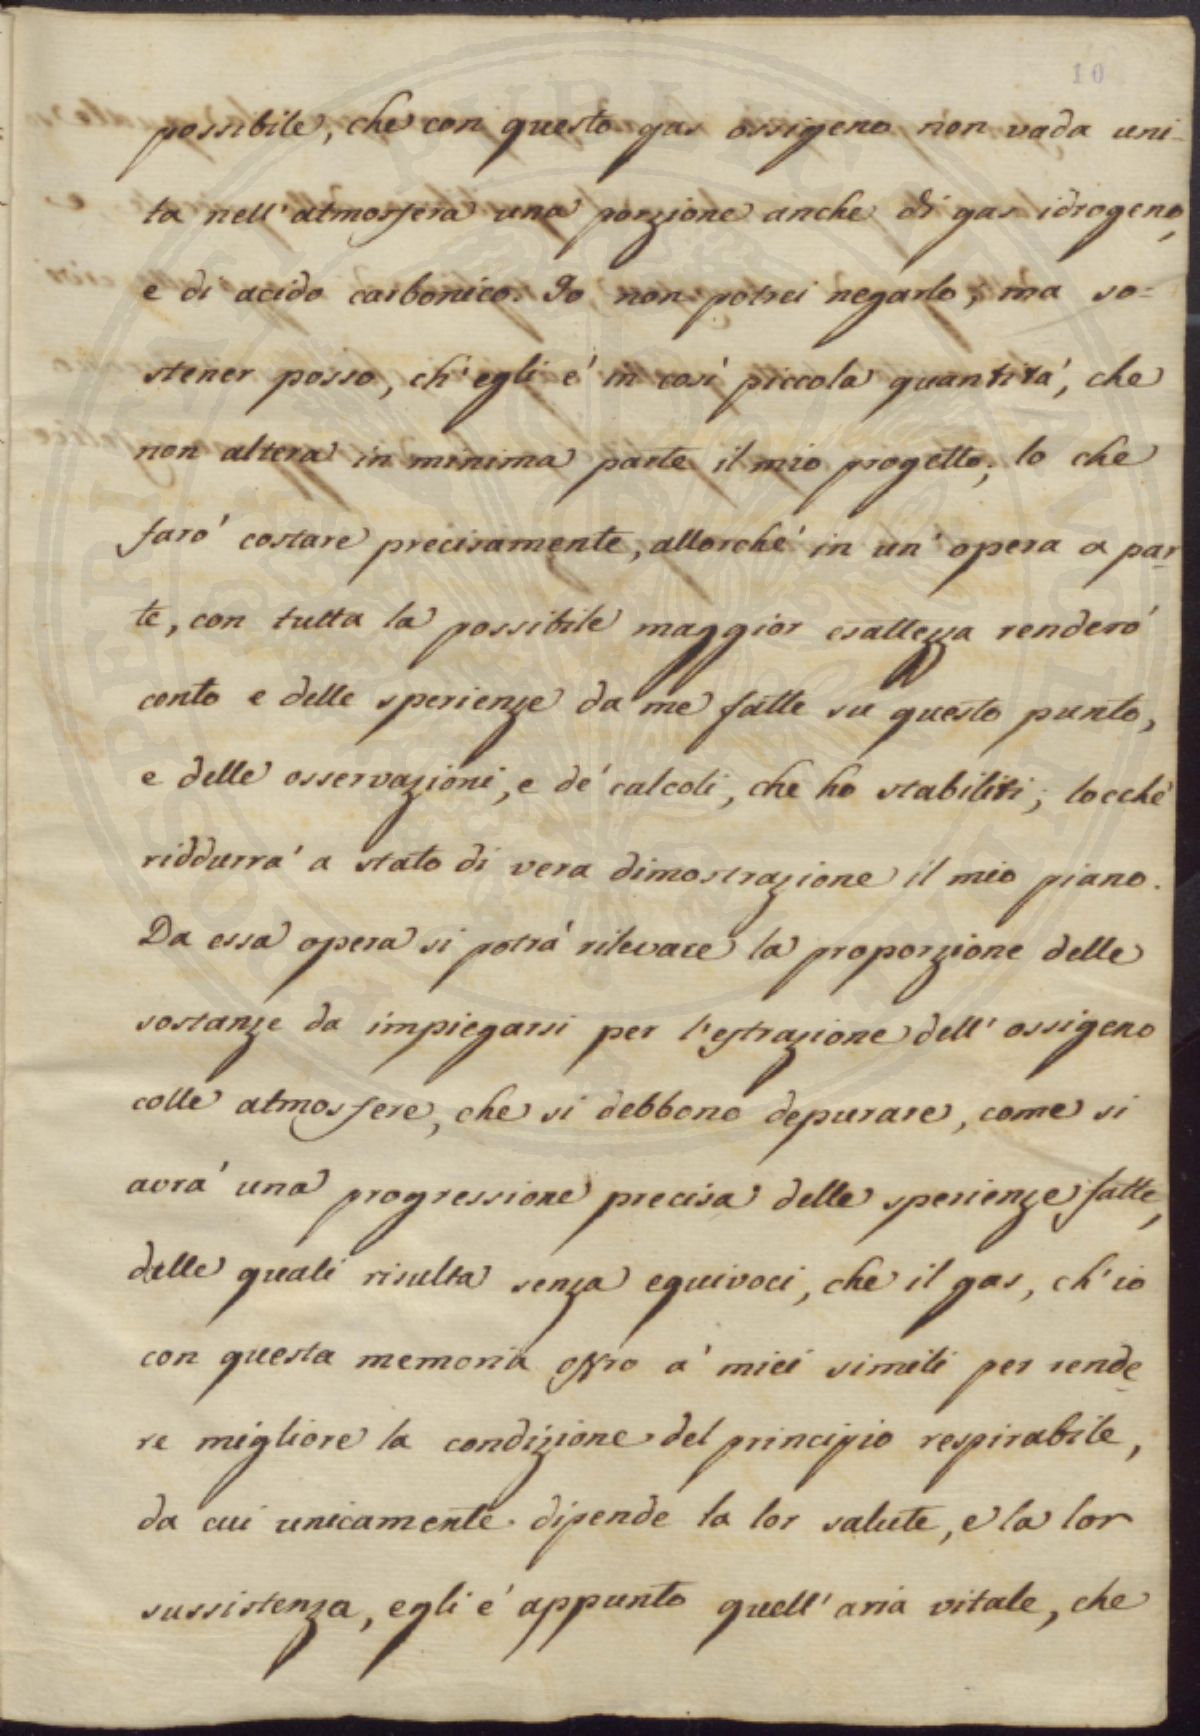 10
possibile, che con questo gas ossigeno non vada uni-
ta nell'atmosfera una porzione anche di gas idrogeno,
e di acido carbonico. Io non potrei negarlo; ma so=
stener posso, ch'egli é in cosí piccola quantitá, che
non altera in minima parte il mio progetto; lo che
faró costare precisamente, allorché in un'opera a par
te, con tutta la possibile maggior esattezza renderó
conto e delle sperienze da me fatte su questo punto,
e delle osservazioni, e de' calcoli, che ho stabiliti; locché
riddurrá a stato di vera dimostrazione il mio piano.
Da essa opera si potrá rilevare la proporzione delle
sostanze da impiegarsi per l'estrazione dell'ossigeno
colle atmosfere, che si debbono depurare, come si
avrá una progressione precisa delle sperienze fatte,
delle quali risulta senza equivoci, che il gas, ch'io
con questa memoria offro a' miei simili per rende
re migliore la condizione del principio respirabile,
da cui unicamente dipende la lor salute, e la lor
sussistenza, egli é appunto quell'aria vitale, che